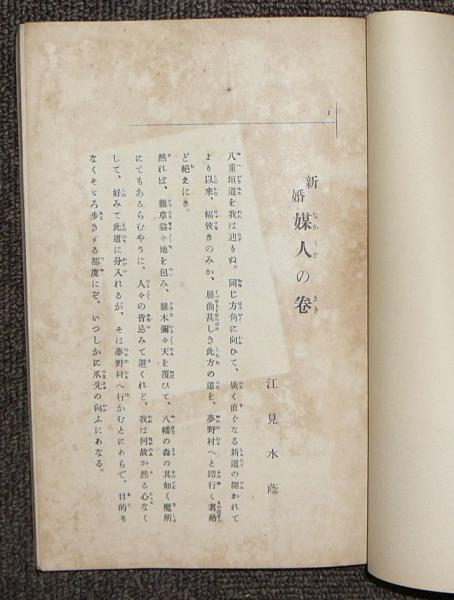 1
新婚 媒人の卷
江見水蔭
八重垣道を我は辿りぬ。同じ方角に向ひて、廣く直ぐなる新道の開かれて
より以來、幅狹きのみか、屈曲甚しき此方の道を、夢野村へと踏行く者殆
ど絕えにき。
然れば、雜草益々地を包み、雜木彌々天を覆ひて、八幡の森の其如く魔所
にてもあるらむやうに、人々の皆忌みて避くれど、我は何故か然る心なく
して、好みて此道に分入れるが、そは夢野村へ行かむとにあらで、目的も
なくそゞろ步きする都度にぞ、いつしかに爪先の向ふにあなる。